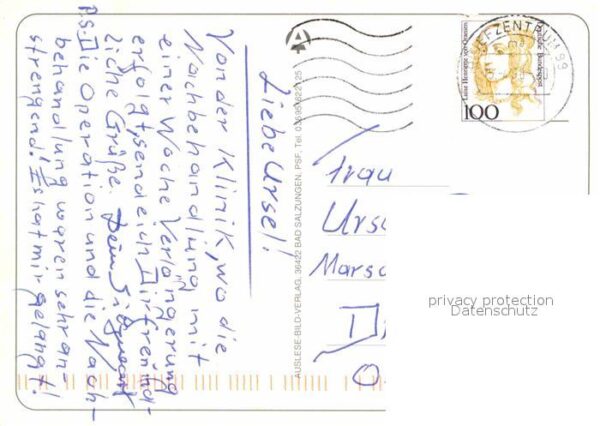 Liebe Ursel!
Von der Klinik, wo die
Nachbehandlung mit
einer Woche Verlängerung
erfolgt, sende ich Dir freund-
liche Grüße. Dein Siegmar
P.S. Die Operation und die Nach-
behandlung waren sehr an-
strengend! Es hat mir gelangt!
AUSLESE-BILD-VERLAG, 36422 BAD SALZUNGEN, PSF, Tel.
BRIEFZENTRUM 99
Luise Henriette von Oranien
Deutsche Bundespost
100
Frau
Urs
Mars
D
O
privacy protection
Datenschutz